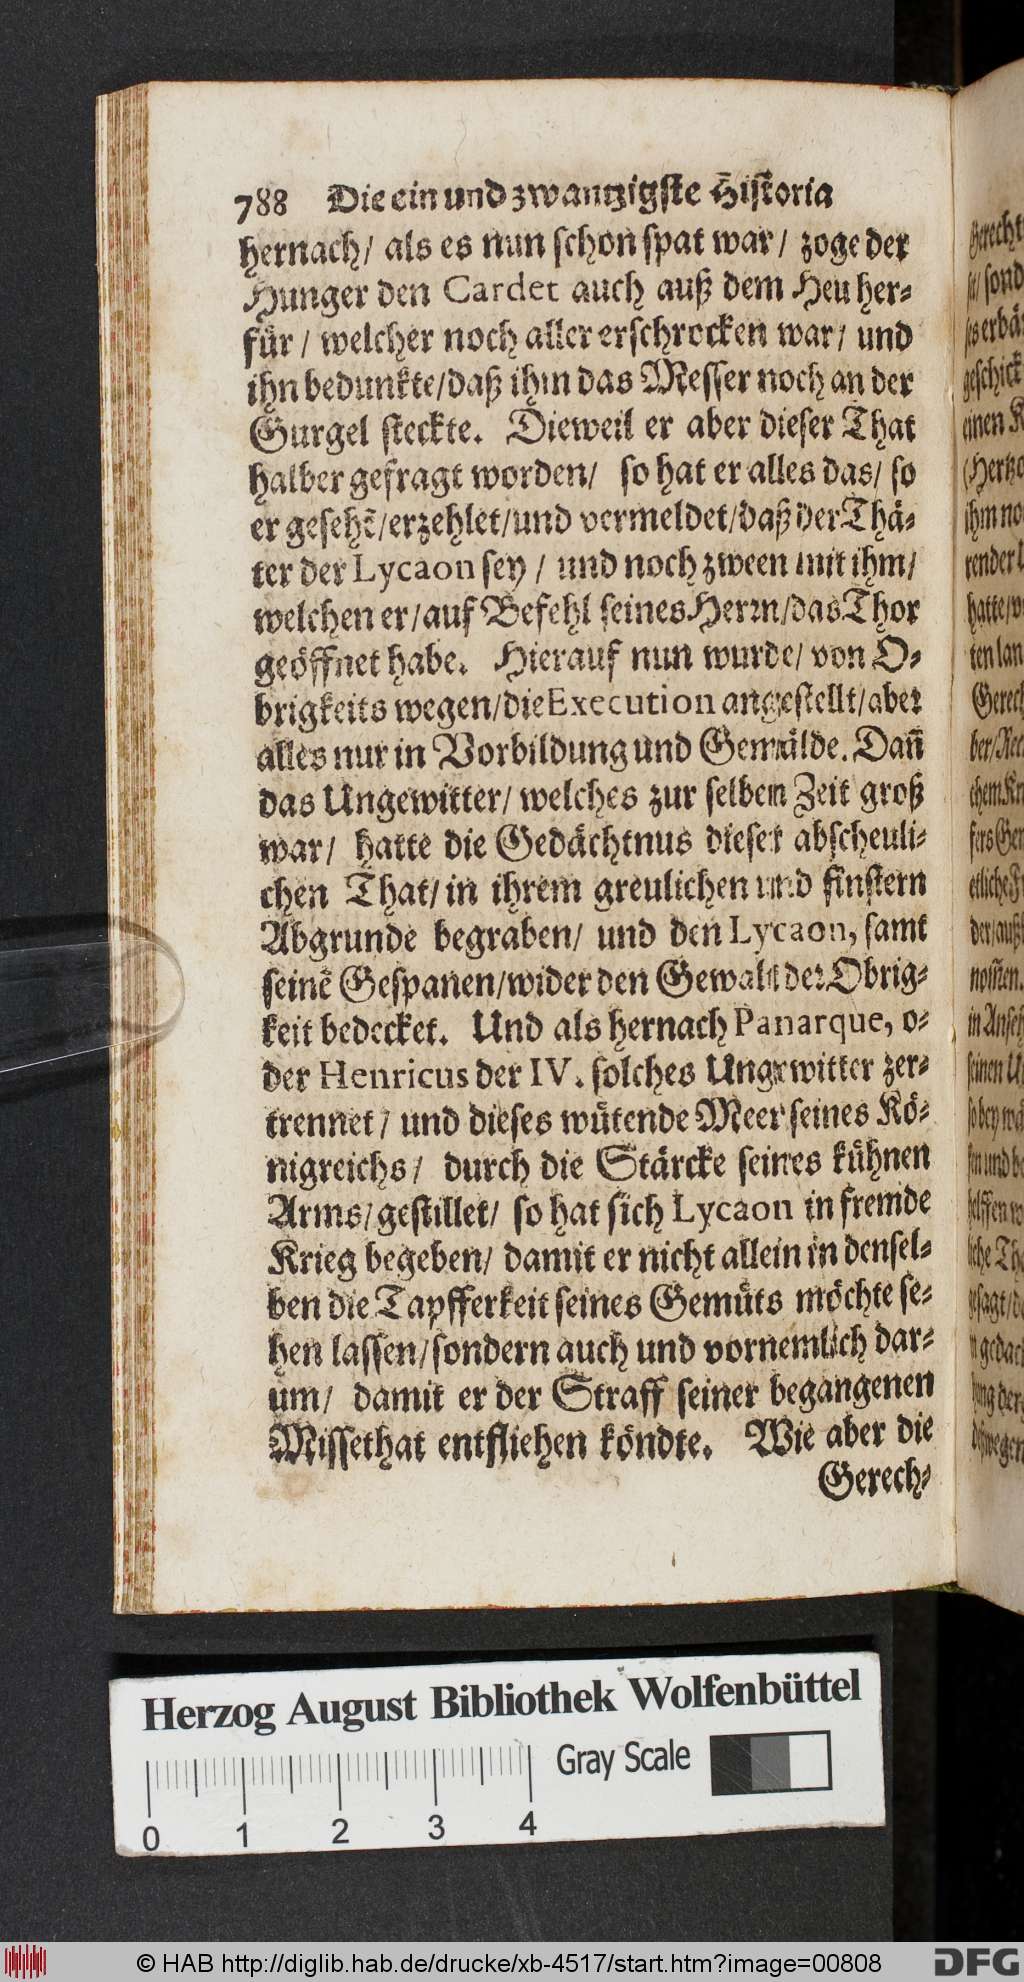 788 Die ein und zwantzigste Historia
hernach/ als es nun schon spat war/ zoge der
Hunger den Cardet auch auß dem Heu her-
für / welcher noch aller erschrocken war/ und
ihn bedunkte/daß ihm das Messer noch an der
Gurgel steckte. Dieweil er aber dieser That
halber gefragt worden/ so hat er alles das/ so
er gesehẽ/erzehlet/und vermeldet/daß der Thä-
ter der Lycaon sey / und noch zween mit ihm/
welchen er/auf Befehl seines Herrn/das Thor
geöffnet habe. Hierauf nun wurde/ von O-
brigkeits wegen/die Execution angestellt/aber
alles nur in Vorbildung und Gemälde. Dañ
das Ungewitter/ welches zur selben Zeit groß
war/ hatte die Gedächtnus dieser abscheuli-
chen That/ in ihrem greulichen und finstern
Abgrunde begraben/ und den Lycaon, samt
seinẽ Gespanen/wider den Gewalt der Obrig-
keit bedecket. Und als hernach Panarque, o-
der Henricus der IV. solches Ungewitter zer-
trennet/ und dieses wütende Meer seines Kö-
nigreichs/ durch die Stärcke seines kühnen
Arms/gestillet/ so hat sich Lycaon in fremde
Krieg begeben/ damit er nicht allein in densel-
ben die Tapfferkeit seines Gemüts möchte se-
hen lassen/sondern auch und vornemlich dar-
um/ damit er der Straff seiner begangenen
Missethat entfliehen köndte. Wie aber die
Gerech-
Herzog August Bibliothek Wolfenbüttel
Gray Scale
0 1 2 3 4
© HAB http://diglib.hab.de/drucke/xb-4517/start.htm?image=00808
DFG